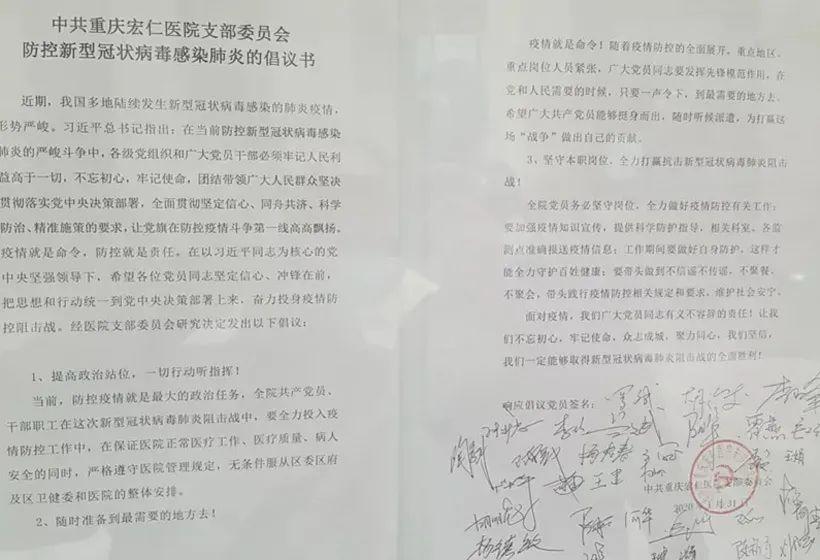 中共重庆宏仁医院支部委员会
防控新型冠状病毒感染肺炎的倡议书
近期，我国多地陆续发生新型冠状病毒感染的肺炎疫情，
形势严峻。习近平总书记指出：在当前防控新型冠状病毒感染
肺炎的严峻斗争中，各级党组织和广大党员干部必须牢记人民利
益高于一切，不忘初心，牢记使命，团结带领广大人民群众坚决
贯彻落实党中央决策部署，全面贯彻坚定信心、同舟共济、科学
防治、精准施策的要求，让党旗在防控疫情斗争第一线高高飘扬。
疫情就是命令，防控就是责任。在以习近平同志为核心的党
中央坚强领导下，希望各位党员同志坚定信心、冲锋在前，
把思想和行动统一到党中央决策部署上来，奋力投身疫情防
控阻击战。经医院支部委员会研究决定发出以下倡议：
1、提高政治站位，一切行动听指挥！
当前，防控疫情就是最大的政治任务，全院共产党员、
干部职工在这次新型冠状病毒肺炎阻击战中，要全力投入疫
情防控工作中，在保证医院正常医疗工作、医疗质量、病人
安全的同时，严格遵守医院管理规定，无条件服从区委区府
及区卫健委和医院的整体安排。
2、随时准备到最需要的地方去！
疫情就是命令！随着疫情防控的全面展开，重点地区、
重点岗位人员紧张，广大党员同志要发挥先锋模范作用，在
党和人民需要的时候，只要一声令下，到最需要的地方去。
希望广大共产党员能够挺身而出，随时听候派遣，为打赢这
场“战争”做出自己的贡献。
3、坚守本职岗位，全力打赢抗击新型冠状病毒肺炎阻击
战！
全院党员务必坚守岗位，全力做好疫情防控有关工作：
要加强疫情知识宣传，提供科学防护指导，相关科室、各监
测点准确报送疫情信息；工作期间要做好自身防护，这样才
能全力守护百姓健康；要带头做到不信谣不传谣，不聚餐、
不聚会，带头践行疫情防控相关规定和要求，维护社会安宁。
面对疫情，我们广大党员同志有义不容辞的责任！让我
们不忘初心，牢记使命，众志成城，聚力同心，我们坚信，
我们一定能够取得新型冠状病毒肺炎阻击战的全面胜利！
响应倡议党员签名：
中共重庆宏仁医院支部委员会
2020年1月31日